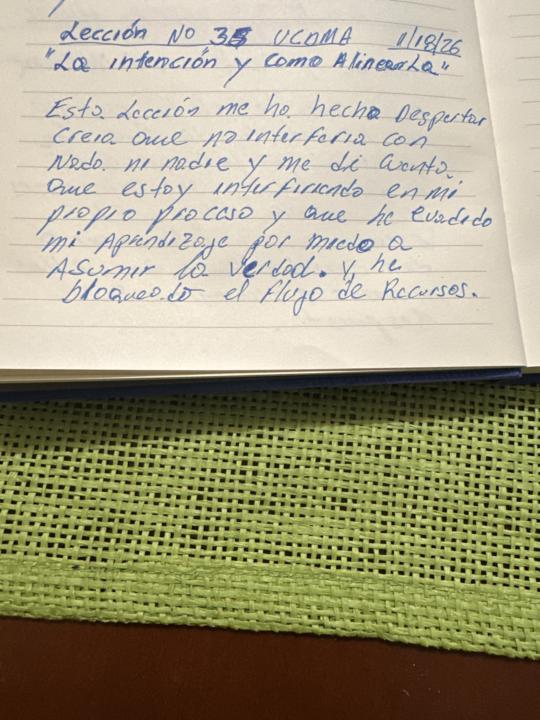 Lección No 35 UCDMA 1/18/26
"La intención y como Alinearla"
Esta Lección me ha hecho Despertar
creia que no interferia con
Nada ni nadie y me di cuenta
que estoy interfiriendo en mi
propio proceso y que he evadido
mi Aprendizaje por miedo a
Asumir la verdad. y he
bloqueado el flujo de Recursos.